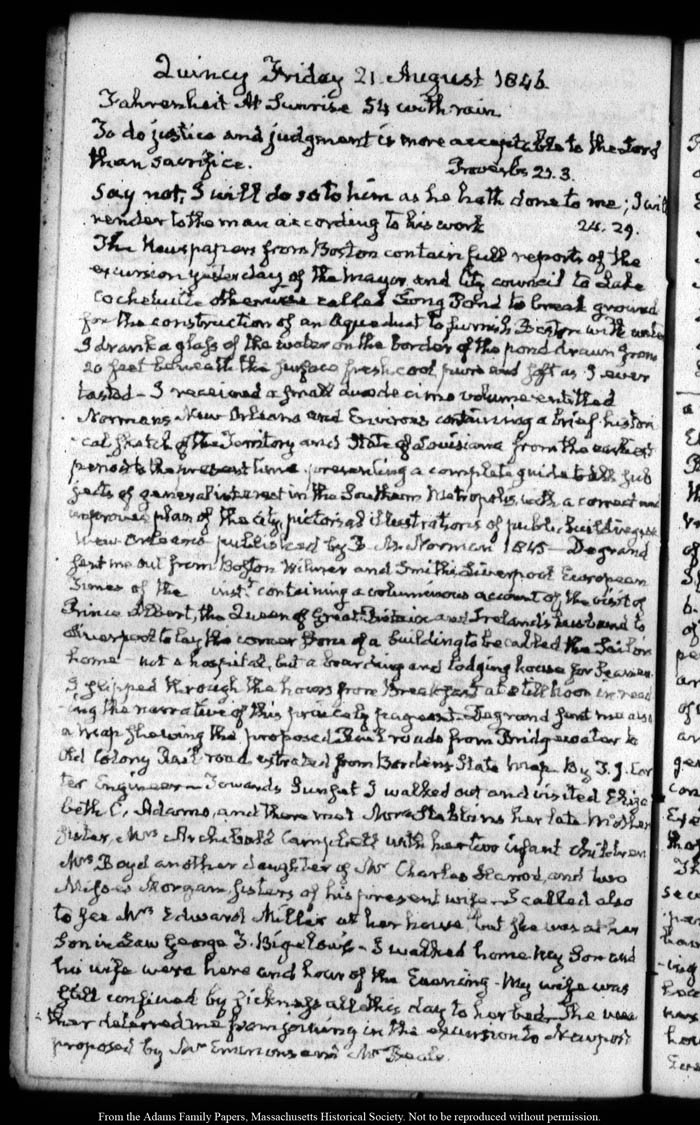 Quincy Friday 21. August 1846
Fahrenheit At Sunrise 54 with rain
To do justice and judgment is more acceptable to the Lord
than sacrifice. Proverbs 21.3.
Say not, I will do so to him as he hath done to me; I will
render to the man according to his work 24. 29.
The Newspapers from Boston contain full reports of the
excursion yesterday of the Mayor and City council to Lake
Cochetuite otherwise called Long Pond to break ground
for the construction of an Aqueduct to furnish Boston with water
I drank a glass of the water on the border of the pond drawn from
20 feet beneath the surface fresh cool pure and soft as I ever
tasted - I received a small duodecimo volume entitled
Normans New Orleans and Environs containing a brief histori
-cal sketch of the Territory and State of Louisiana from the earliest
period to the present time presenting a complete guide to all sub
jects of general interest in the Southern Metropolis, with a correct and
improved plan of the city, pictorial illustrations of public buildings &c
New Orleans published by B. M. Norman 1845 - Degrand
sent me out from Boston Wilmer and Smith's Liverpool European
Times of the inst. containing a voluminous account of the visit of
Prince Albert, the Queen of Great Britain and Ireland's husband to
Liverpool to lay the corner stone of a building to be called the Sailor's
home - not a hospital, but a boarding and lodging house for Seamen.
I slipped through the hours from Breakfast at 8 till Noon in read
-ing the narrative of this princely pageant - Degrand sent me also
a map shewing the proposed Rail roads from Bridgewater to
Old Colony Rail road extracted from Bordens State map by T. J. Car
ter Engineer - Towards Sunset I walked out and visited Eliza
beth C. Adams, and there met Mrs Stebbins her late Mother's
sister, Mrs Archibald Campbell with her two infant children
Mrs Boyd another daughter of Mr Charles and two
Misses Morgan, sisters of his present wife - I called also
to see Mrs Edward Miller at her house, but she was at her
Son in Law George T. Bigelow's - I walked home. My Son and
his wife were here and hour of the Evening - My wife was
still confined by sickness all this day to her bed. The wea
ther deterred me from joining in the excursion to Newport
proposed by Mr Emmons and Mr Beals.
From the Adams Family Papers, Massachusetts Historical Society. Not to be reproduced without permission.